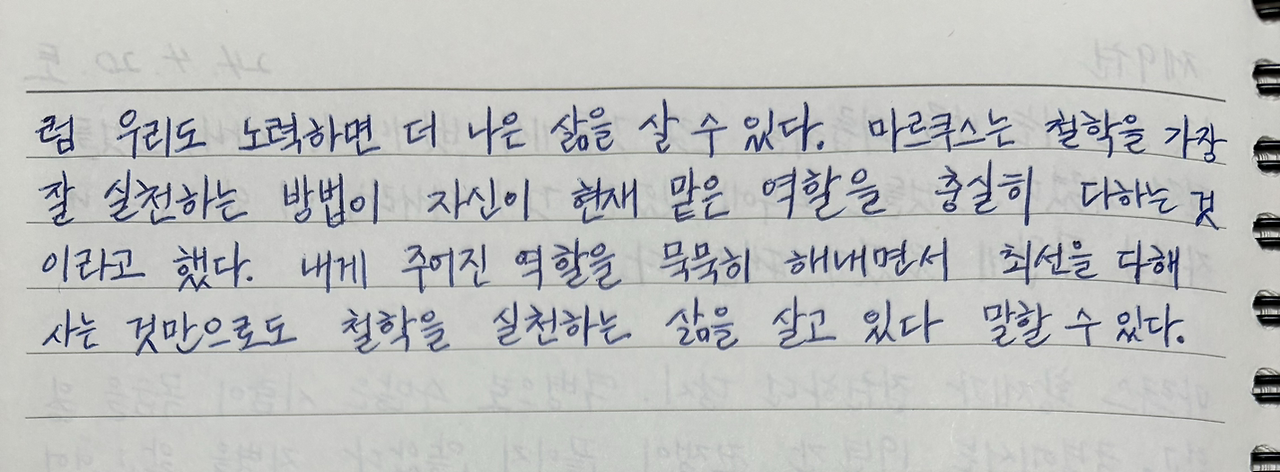 럼 우리도 노력하면 더 나은 삶을 살 수 있다. 마르쿠스는 철학을 가장
잘 실천하는 방법이 자신이 현재 맡은 역할을 충실히 다하는 것
이라고 했다. 내게 주어진 역할을 묵묵히 해내면서 최선을 다해
사는 것만으로도 철학을 실천하는 삶을 살고 있다 말할 수 있다.